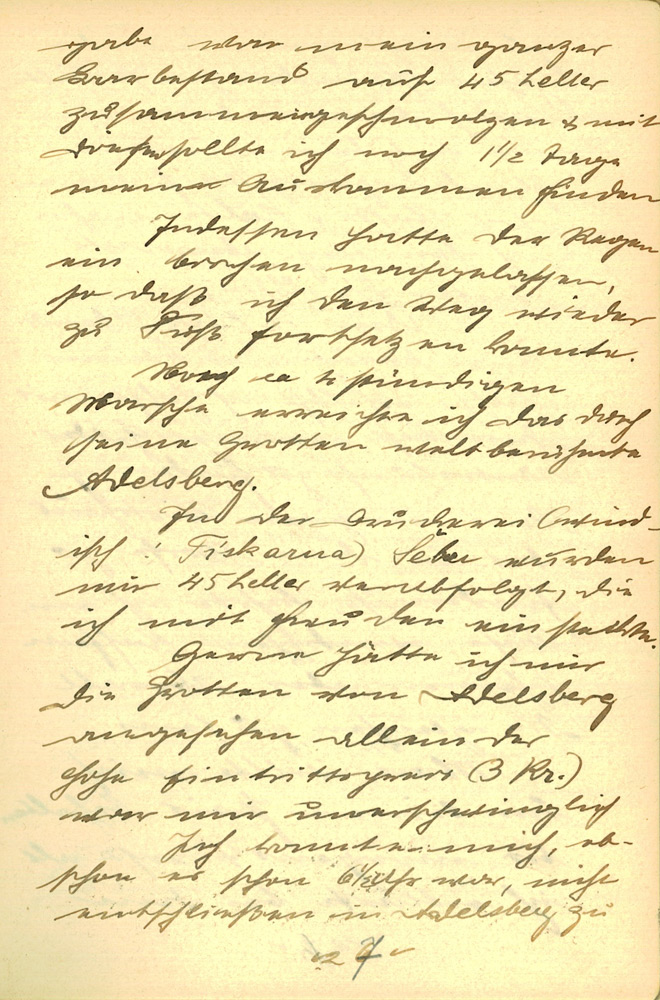 gabe war mein ganzer
Barbestand auf 45 Heller
zusammengeschmolzen & mit
diesen sollte ich noch 1 1/2 Tage
mein Auskommen finden
Indessen hatte der Regen
ein bischen nachgelassen,
so daß ich den Weg wieder
zu Fuß fortsetzen konnte.
Nach ca stündigen
Marsche erreichte ich das durch
seine Grotten weltberühmte
Adelsberg.
In der Druckerei (wind-
isch: Tiskarna) Šeber wurden
mir 45 Heller verabfolgt, die
ich mit Freuden einsteckte.
Gerne hätte ich mir
die Grotten von Adelsberg
angesehen allein der
hohe Eintrittspreis (3 Kr.)
war mir unerschwinglich
Ich konnte mich, ob-
schon es schon 6 1/2 Uhr war, nicht
entschließen in Adelsberg zu